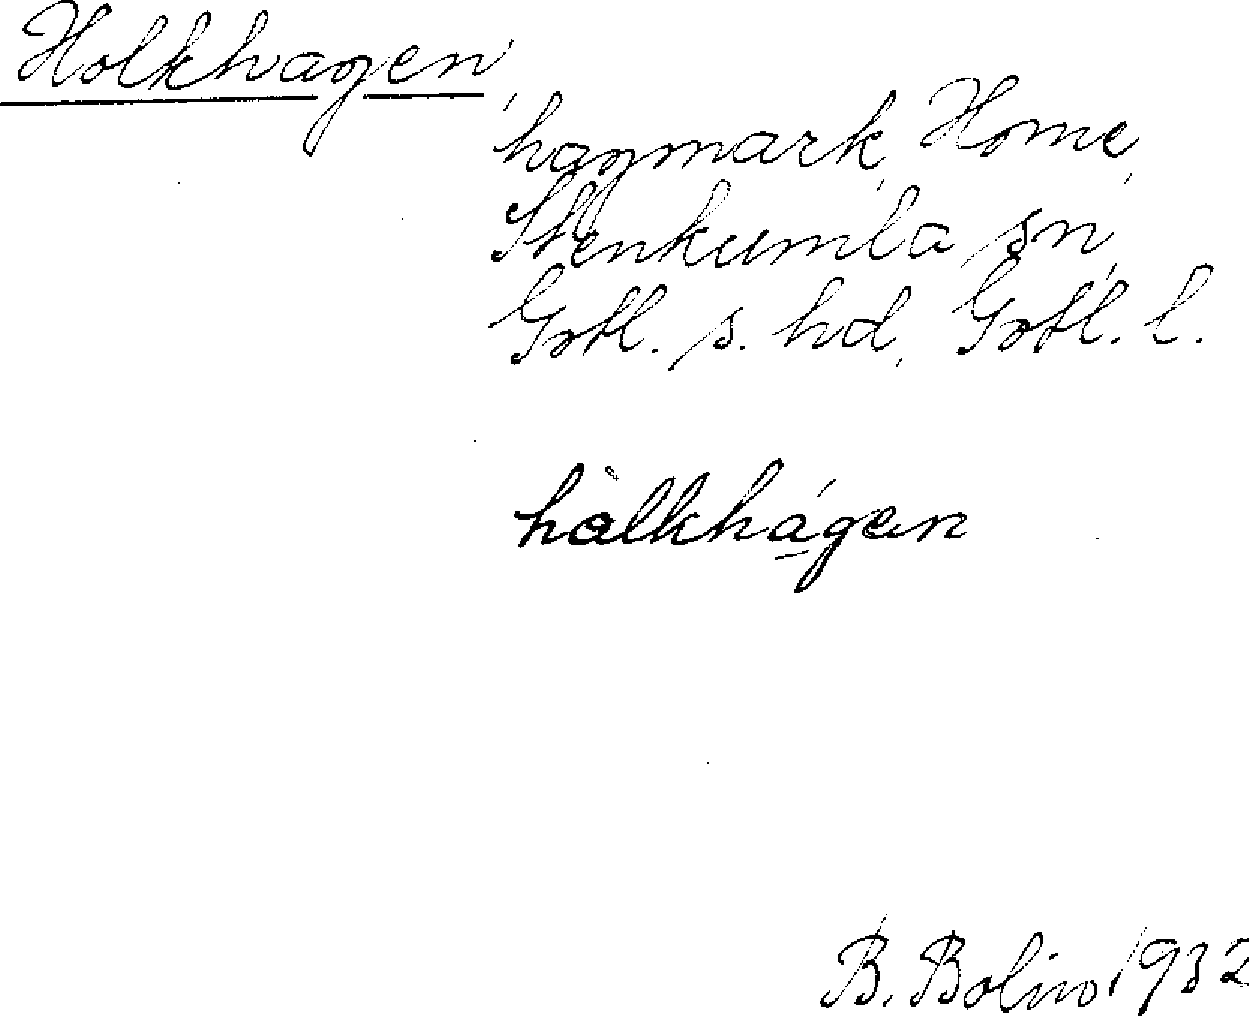 Holkhagen,
hagmark, Home,
Stenkumla sn,
Gotl. s. hd, Gotl. l.
hàlkhá̱gen
B. Bolin 1932